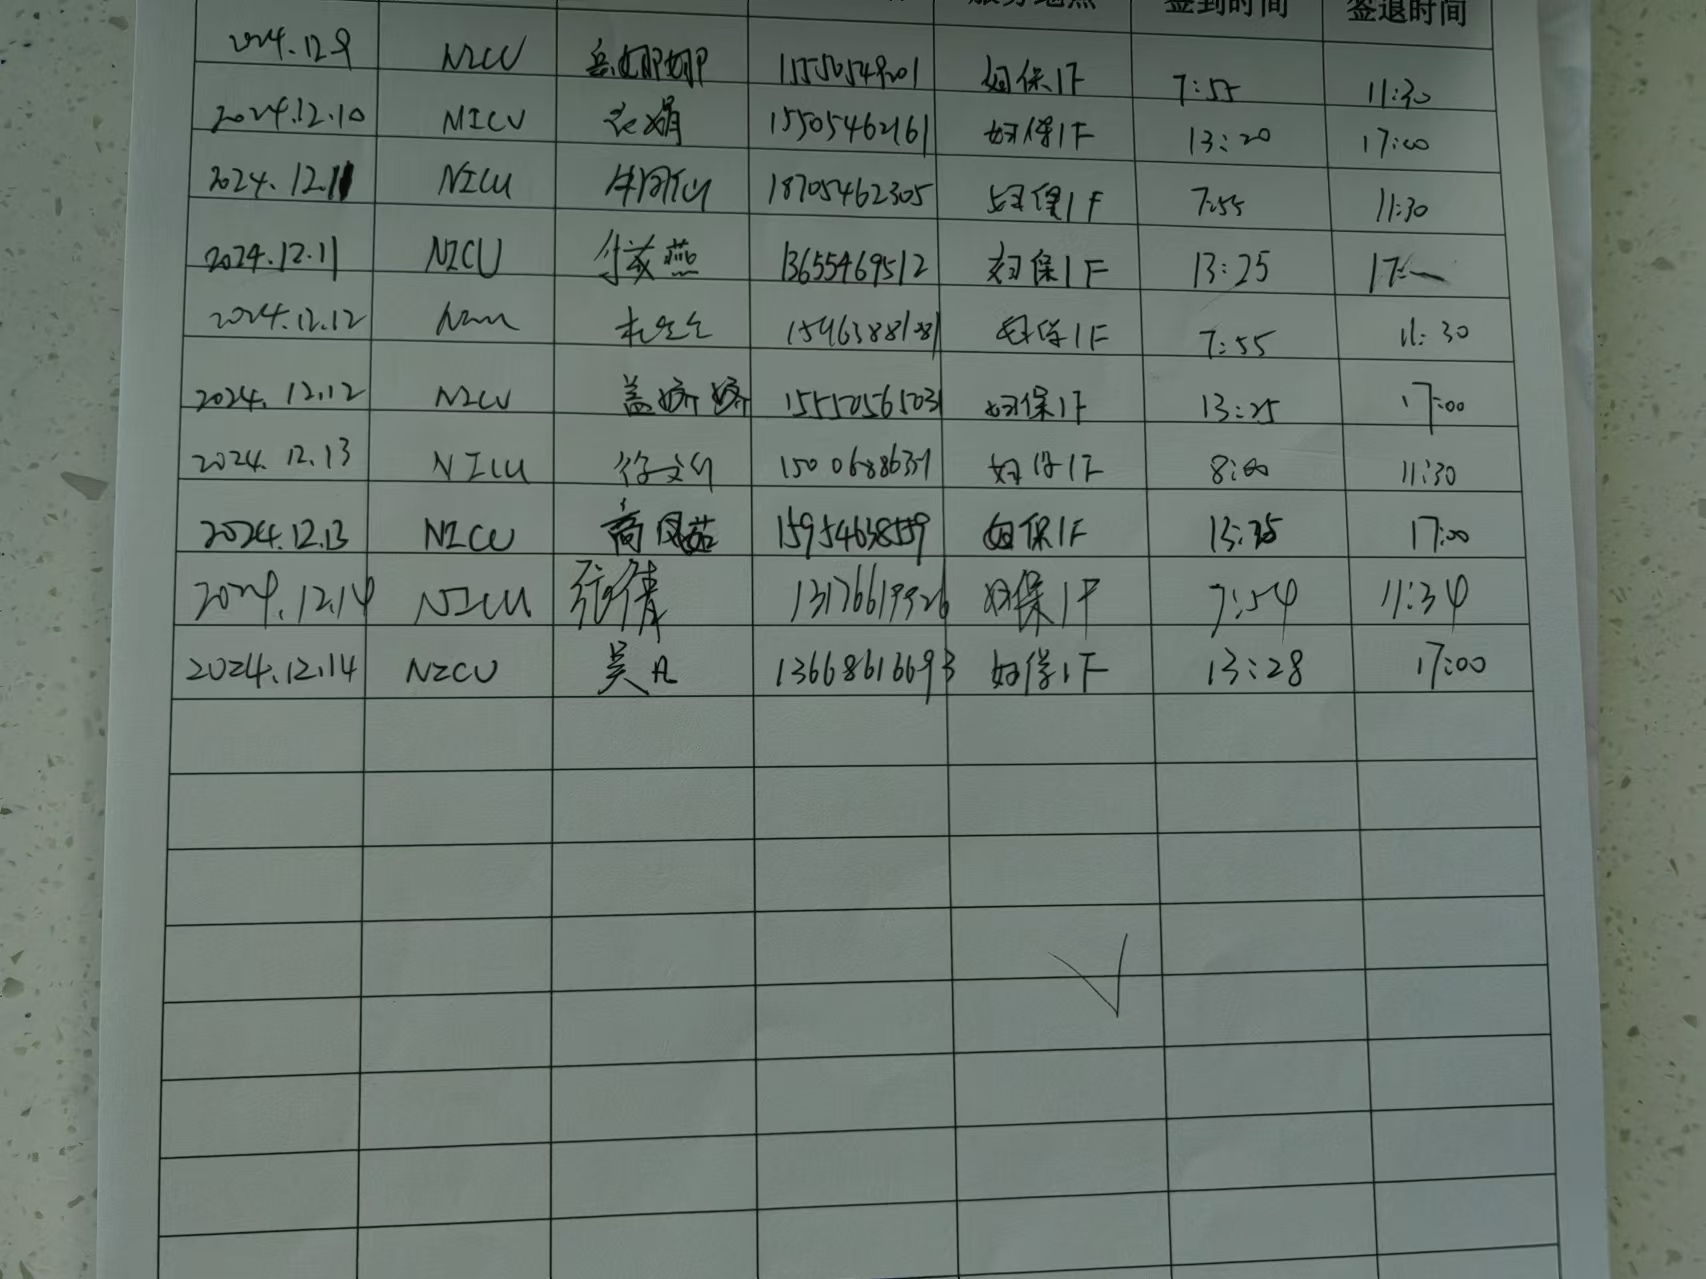 服务地点 签到时间 签退时间
2024.12.9 NICU 岳娜娜 15550549201 妇保1F 7:55 11:30
2024.12.10 NICU 15505462161 妇保1F 13:20 17:00
2024.12.11 NICU 18705462305 妇保1F 7:55 11:30
2024.12.11 NICU 燕 13655469512 妇保1F 13:25 17:
2024.12.12 妇保1F 7:55 11:30
2024.12.12 NICU 盖娇娇 15550565031 妇保1F 13:25 17:00
2024.12.13 NICU 徐文 妇保1F 8:00 11:30
2024.12.13 NICU 商凤茹 15954638559 妇保1F 17:00
2024.12.14 NICU 张倩 13176619926 妇保1F 7:54 11:34
2024.12.14 NICU 吴凡 13668616693 妇保1F 13:28 17:00